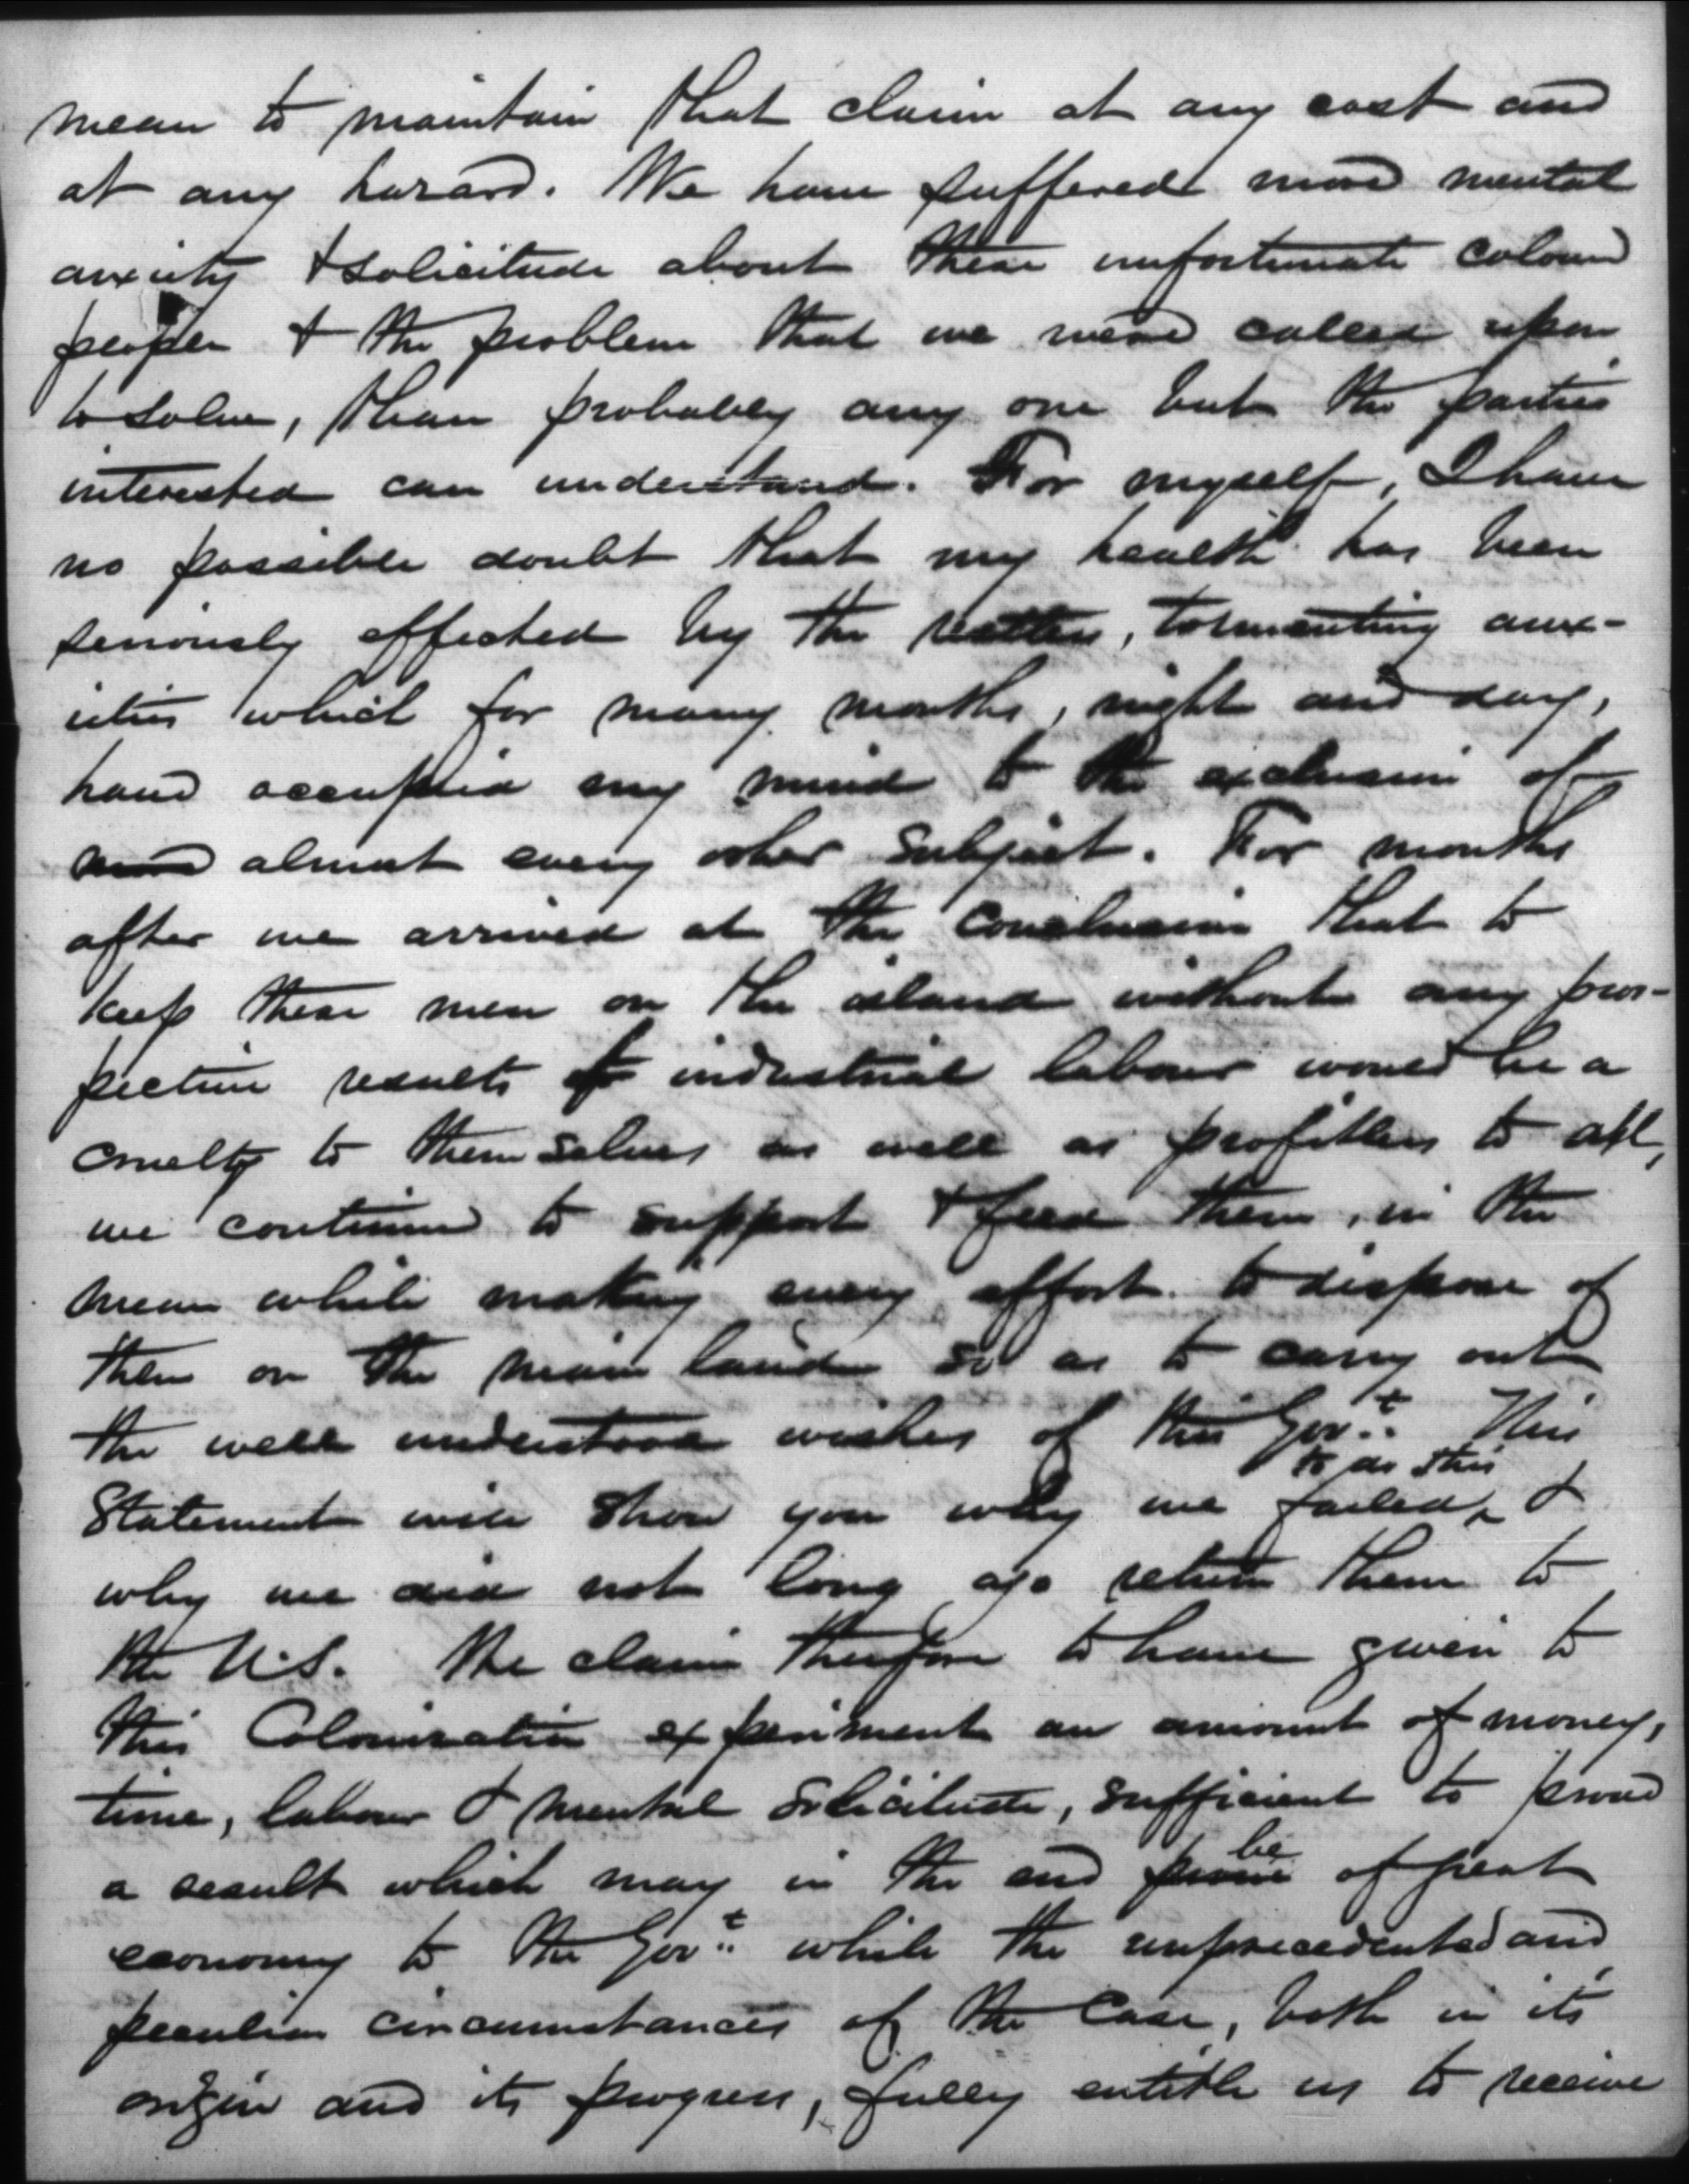 mean to maintain that claim at any cost and
at any hazard. We have suffered more mental
anxiety & solicitude about these unfortunate colored
people & the problem that we were called upon
to solve, than probably any one but the parties
interested can understand. For myself, I have
no possible doubt that my health has been
seriously affected by the restless, tormenting anx-
ieties which for many months, night and day,
have occupied my mind to the exclusion of
almost every other subject. For months
after we arrived at the conclusion that to
keep these men on the island without any pros-
pective results of industrial labour would be a
cruelty to themselves as well as profitless to all,
we continued to support & feed them, in the
mean while making every effort to dispose of
them on the main land so as to carry out
the well understood wishes of this Govt. This
Statement will show you why we failed to do this &
why we did not long ago return them to
the U.S. We claim therefore to have given to
this Colonization experiment an amount of money,
time, labour & mental solicitude, sufficient to prove
a result which may in the end be of great
economy to the Govt. while the unprecedented and
peculiar circumstances of the case, both in its
origin and its progress, fully entitle us to receive